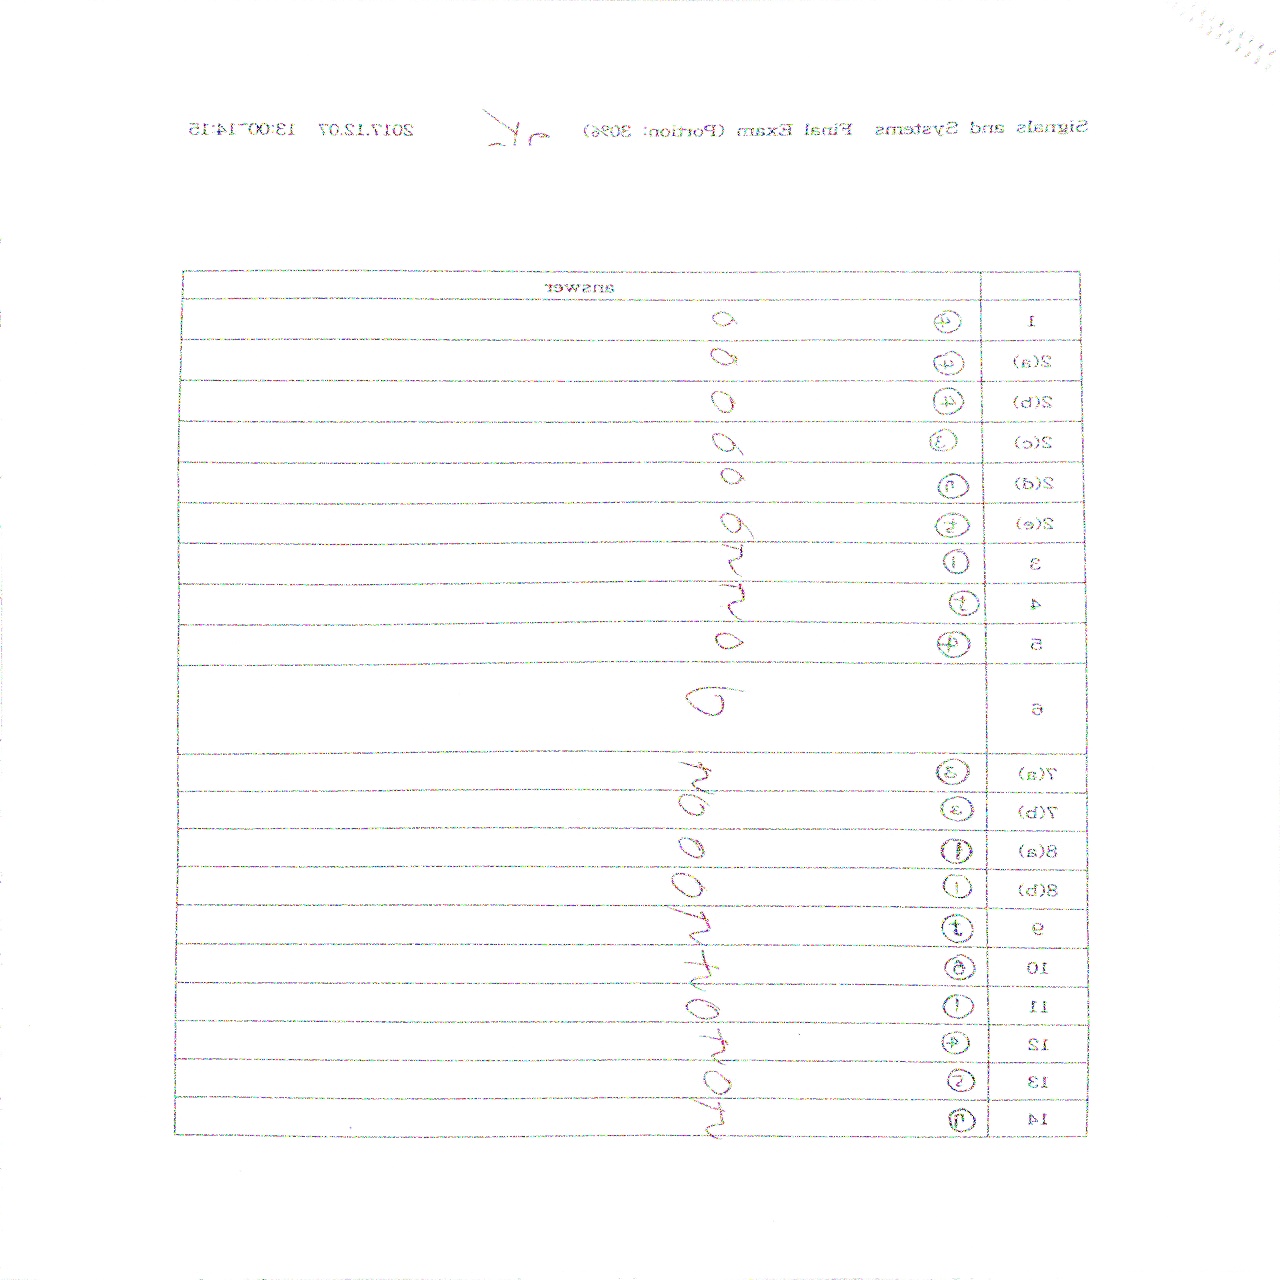 Signals and Systems Final Exam (Portion: 30%) 2017.12.07 13:00~14:15
answer
1 ④ O
2(a) ③ O
2(b) ④ O
2(c) ③ O
2(d) ⑤ O
2(e) ⑤ O
3 ①
4
5 ④ O
6 O
7(a) ③
7(b) ③ O
8(a) ① O
8(b) ① O
9
10
11 ① O
12 ④
13 ⑤ O
14 ⑤